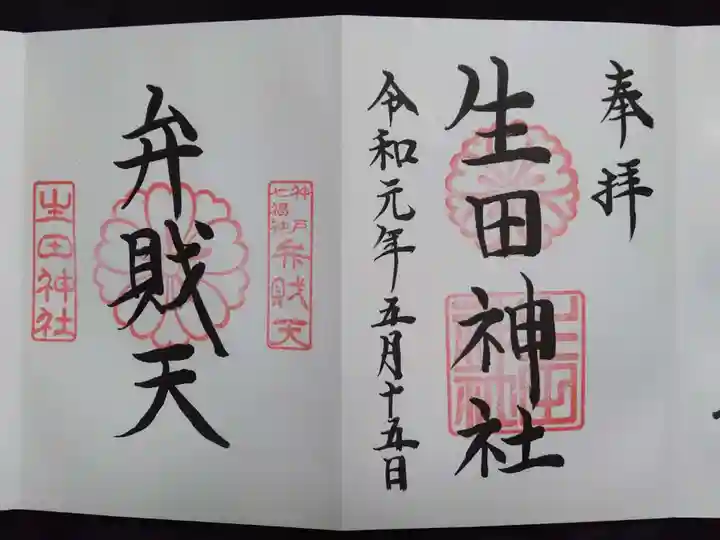 奉拝
生田神社
令和元年五月十五日
生田神社
神戸
七福社
弁財天
弁財天
生田神社